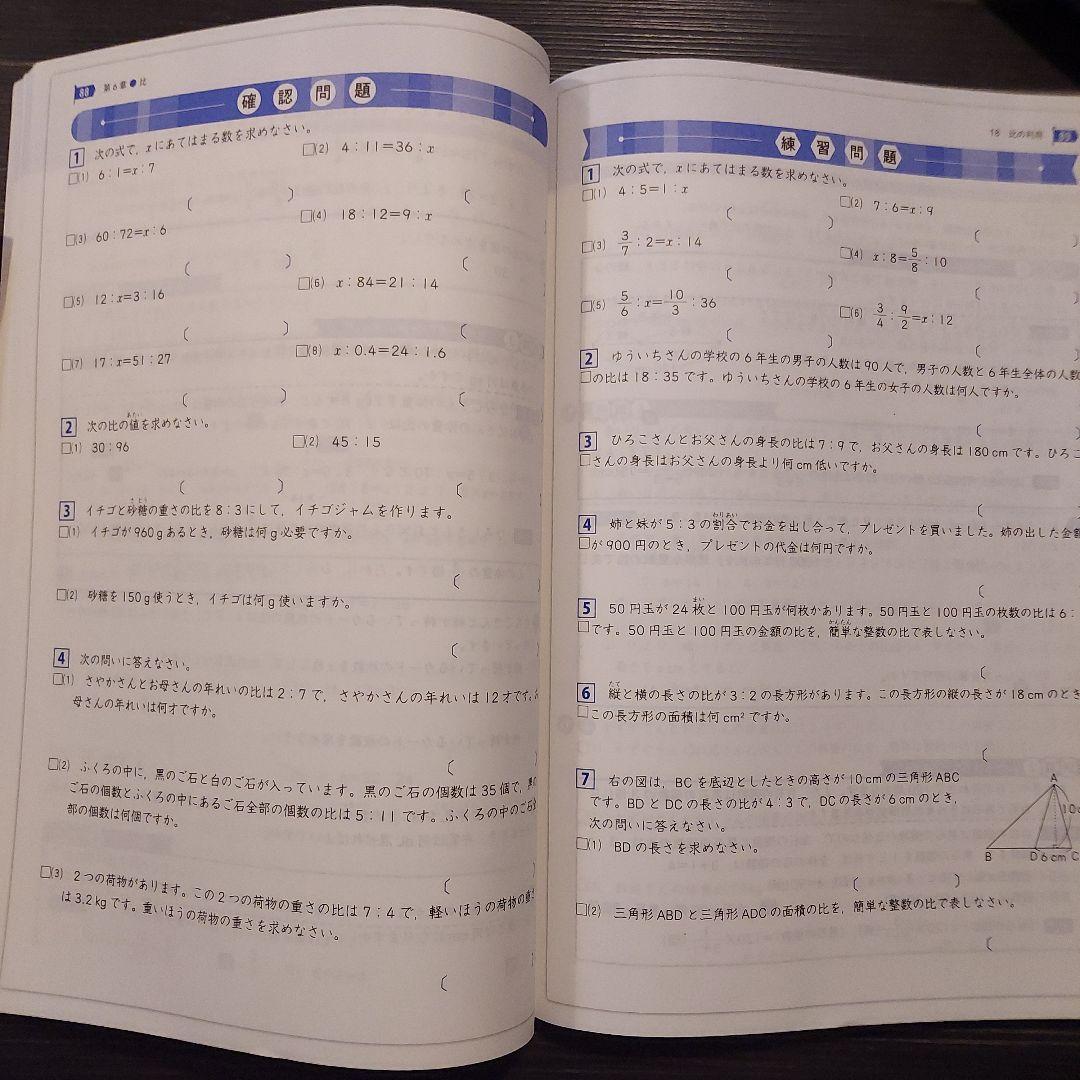 88 第6章 比
確認問題
1 次の式で，xにあてはまる数を求めなさい。
□(1) 6：1＝x：7
□(2) 4：11＝36：x
□(3) 60：72＝x：6
□(4) 18：12＝9：x
□(5) 12：x＝3：16
□(6) x：84＝21：14
□(7) 17：x＝51：27
□(8) x：0.4＝24：1.6
2 次の比の値を求めなさい。
□(1) 30：96
□(2) 45：15
3 イチゴと砂糖の重さの比を8：3にして，イチゴジャムを作ります。
□(1) イチゴが960gあるとき，砂糖は何g必要ですか。
□(2) 砂糖を150g使うとき，イチゴは何g使いますか。
4 次の問いに答えなさい。
□(1) さやかさんとお母さんの年れいの比は2：7で，さやかさんの年れいは12才です。
母さんの年れいは何才ですか。
□(2) ふくろの中に，黒のご石と白のご石が入っています。黒のご石の個数は35個で，黒の
ご石の個数とふくろの中にあるご石全部の個数の比は5：11です。ふくろの中のご石全
部の個数は何個ですか。
□(3) 2つの荷物があります。この2つの荷物の重さの比は7：4で，軽いほうの荷物の重さ
は3.2kgです。重いほうの荷物の重さを求めなさい。
18 比の利用 89
練習問題
1 次の式で，xにあてはまる数を求めなさい。
□(1) 4：5＝1：x
□(2) 7：6＝x：9
□(3) 3/7：2＝x：14
□(4) x：8＝5/8：10
□(5) 5/6：x＝10/3：36
□(6) 3/4：9/2＝x：12
2 ゆういちさんの学校の6年生の男子の人数は90人で，男子の人数と6年生全体の人数
□の比は18：35です。ゆういちさんの学校の6年生の女子の人数は何人ですか。
3 ひろこさんとお父さんの身長の比は7：9で，お父さんの身長は180cmです。ひろこ
□さんの身長はお父さんの身長より何cm低いですか。
4 姉と妹が5：3の割合でお金を出し合って，プレゼントを買いました。姉の出した金額
□が900円のとき，プレゼントの代金は何円ですか。
5 50円玉が24枚と100円玉が何枚かあります。50円玉と100円玉の枚数の比は6：
□です。50円玉と100円玉の金額の比を，簡単な整数の比で表しなさい。
6 縦と横の長さの比が3：2の長方形があります。この長方形の縦の長さが18cmのとき
□この長方形の面積は何cm²ですか。
7 右の図は，BCを底辺としたときの高さが10cmの三角形ABC
です。BDとDCの長さの比が4：3で，DCの長さが6cmのとき，
次の問いに答えなさい。
□(1) BDの長さを求めなさい。
□(2) 三角形ABDと三角形ADCの面積の比を，簡単な整数の比で表しなさい。
A
10
B D 6cm C